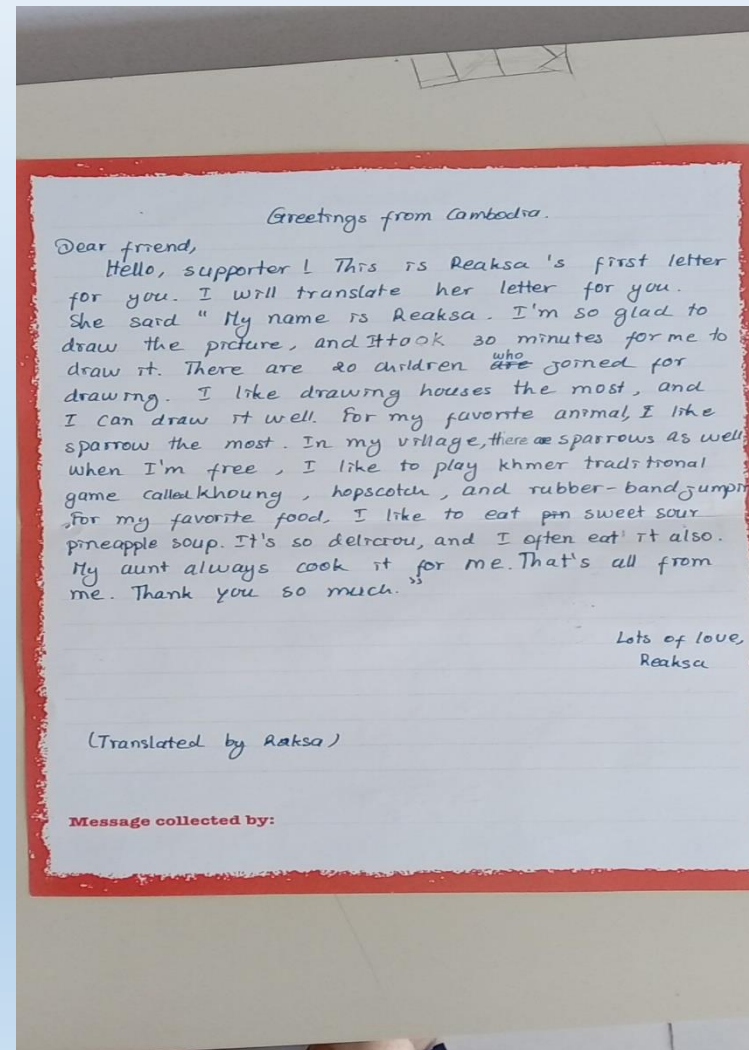 Greetings from Cambodia.
Dear friend,
Hello, supporter! This is Reaksa's first letter
for you. I will translate her letter for you.
She said "My name is Reaksa. I'm so glad to
draw the picture, and It took 30 minutes for me to
draw it. There are 20 children who joined for
drawing. I like drawing houses the most, and
I can draw it well. For my favorite animal, I like
sparrow the most. In my village, there are sparrows as well
when I'm free, I like to play khmer traditional
game called khoung, hopscotch, and rubber-band jumpin
,for my favorite food, I like to eat sweet sour
pineapple soup. It's so deliciou, and I often eat it also.
My aunt always cook it for me. That's all from
me. Thank you so much."
Lots of love,
Reaksa
(Translated by Raksa)
Message collected by: